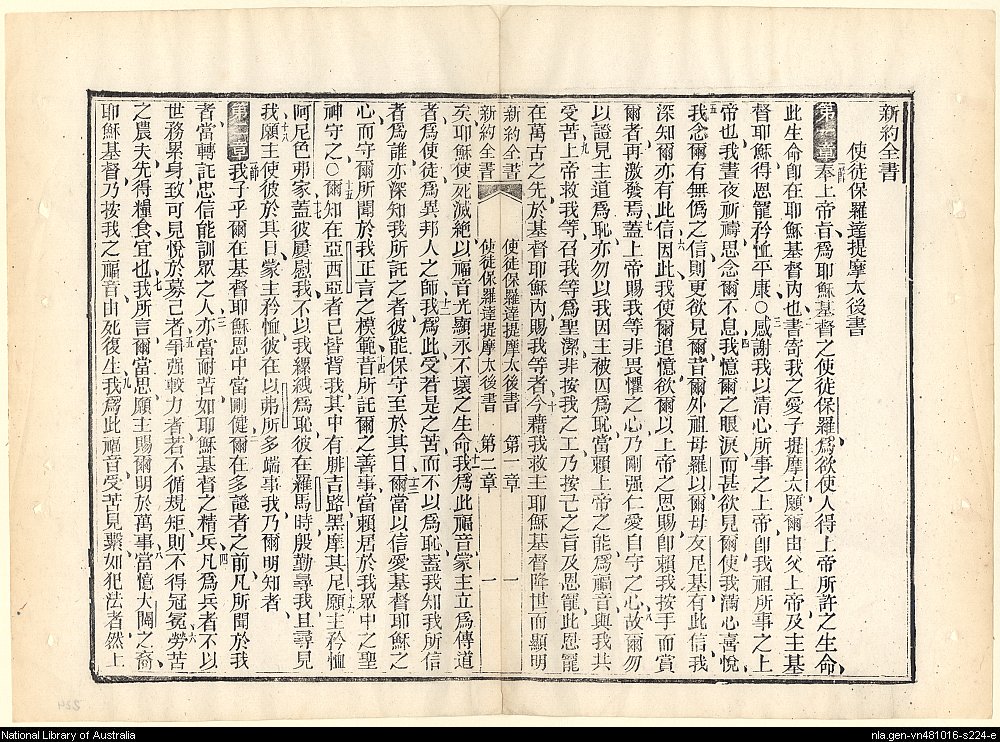 新約全書
使徒保羅達提摩太後書
第一章 一節 奉上帝旨爲耶穌基督之使徒保羅爲欲使人得上帝所許之生命
此生命卽在耶穌基督內也書寄我之愛子提摩太願爾由父上帝及主基
督耶穌得恩寵矜恤平康○感謝我以清心所事之上帝卽我祖所事之上
帝也我晝夜祈禱思念爾不息我憶爾之眼淚而甚欲見爾使我滿心喜悅
我念爾有無僞之信則更欲見爾昔爾外祖母羅以爾母友尼基有此信我
深知爾亦有此信因此我使爾追憶欲爾以上帝之恩賜卽賴我按手而賞
爾者再激發焉蓋上帝賜我等非畏懼之心乃剛强仁愛自守之心故爾勿
以證見主道爲恥亦勿以我因主被囚爲恥當賴上帝之能爲福音與我共
受苦上帝救我等召我等爲聖潔非按我之工乃按己之旨及恩寵此恩寵
在萬古之先於基督耶穌內賜我等者今藉我救主耶穌基督降世而顯明
新約全書 使徒保羅達提摩太後書 第一章 一
新約全書 使徒保羅達提摩太後書 第二章 一
矣耶穌使死滅絕以福音光顯永不壞之生命我爲此福音蒙主立爲傳道
者爲使徒爲異邦人之師我爲此受若是之苦而不以爲恥蓋我知我所信
者爲誰亦深知我所託之者彼能保守至於其日爾當以信愛基督耶穌之
心而守爾所聞於我正言之模範昔所託爾之善事當賴居於我眾中之聖
神守之○爾知在亞西亞者已皆背我其中有腓吉路黑摩其尼願主矜恤
阿尼色弗家蓋彼屢慰我不以我縲絏爲恥彼在羅馬時殷勤尋我且尋見
我願主使彼於其日蒙主矜恤彼在以弗所多端事我乃爾明知者
第二章 一節 我子乎爾在基督耶穌恩中當剛健爾在多證者之前凡所聞於我
者當轉託忠信能訓眾之人亦當耐苦如耶穌基督之精兵凡爲兵者不以
世務累身致可見悅於募己者爭强較力者若不循規矩則不得冠冕勞苦
之農夫先得糧食宜也我所言爾當思願主賜爾明於萬事當憶大闢之裔
耶穌基督乃按我之福音由死復生我爲此福音受苦見繫如犯法者然上
National Library of Australia
nla.gen-vn481016-s224-e